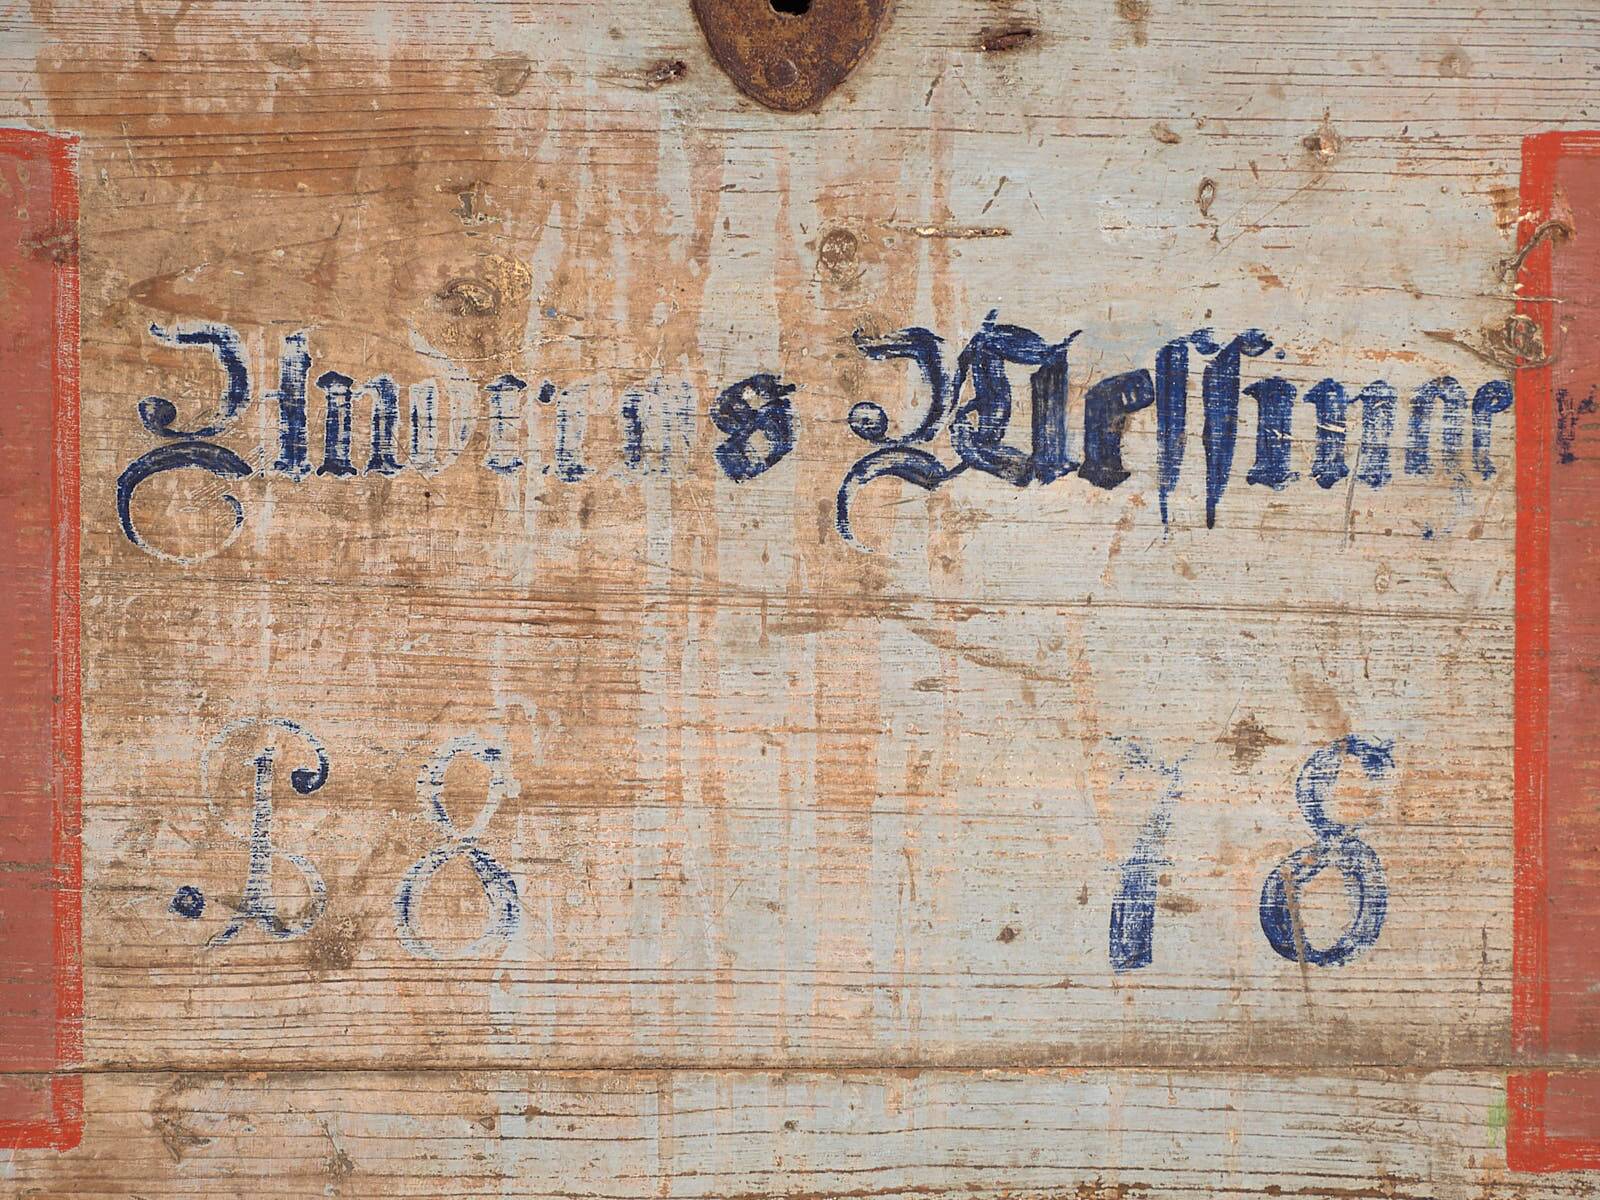 Andreas Messinger
18 78